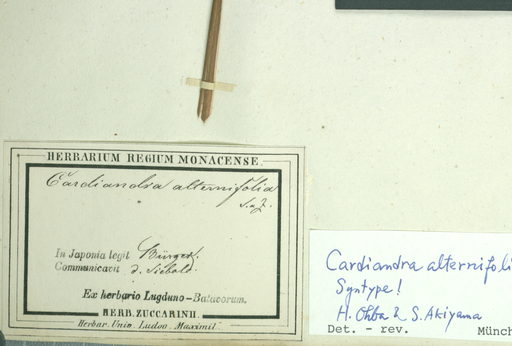 HERBARIUM REGIUM MONACENSE.
Cardiandra alternifolia
S. et Z.
In Japonia legit Bürger.
Communicavit d. Siebold.
Ex herbario Lugduno-Batavorum.
HERB. ZUCCARINII.
Herbar. Univ. Ludov. Maximil.
Cardiandra alternifoli
Syntype!
H. Ohba & S. Akiyama
Det. - rev. Münch